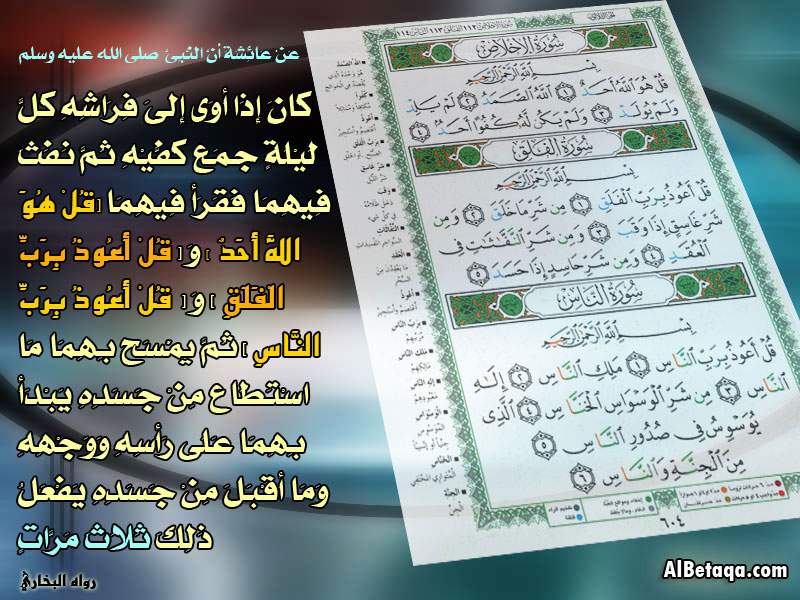 عن عائشة أن النبي صلى الله عليه وسلم
كَانَ إِذَا أَوَى إِلَى فِرَاشِهِ كُلَّ
لَيْلَةٍ جَمَعَ كَفَّيْهِ ثُمَّ نَفَثَ
فِيهِمَا فَقَرَأَ فِيهِمَا [قُلْ هُوَ
اللَّهُ أَحَدٌ ] وَ[ قُلْ أَعُوذُ بِرَبِّ
الْفَلَقِ ] وَ[ قُلْ أَعُوذُ بِرَبِّ
النَّاسِ ] ثُمَّ يَمْسَحُ بِهِمَا مَا
اسْتَطَاعَ مِنْ جَسَدِهِ يَبْدَأُ
بِهِمَا عَلَى رَأْسِهِ وَوَجْهِهِ
وَمَا أَقْبَلَ مِنْ جَسَدِهِ يَفْعَلُ
ذَلِكَ ثَلَاثَ مَرَّاتٍ
رواه البخاري
سورة الإخلاص ١١٢ الفلق ١١٣ الناس ١١٤
سُورَةُ الإِخْلَاصِ
بِسْمِ اللَّهِ الرَّحْمَٰنِ الرَّحِيمِ
قُلْ هُوَ اللَّهُ أَحَدٌ ١ اللَّهُ الصَّمَدُ ٢ لَمْ يَلِدْ
وَلَمْ يُولَدْ ٣ وَلَمْ يَكُن لَّهُ كُفُوًا أَحَدٌ ٤
سُورَةُ الْفَلَقِ
بِسْمِ اللَّهِ الرَّحْمَٰنِ الرَّحِيمِ
قُلْ أَعُوذُ بِرَبِّ الْفَلَقِ ١ مِن شَرِّ مَا خَلَقَ ٢ وَمِن
شَرِّ غَاسِقٍ إِذَا وَقَبَ ٣ وَمِن شَرِّ النَّفَّٰثَٰتِ فِي
الْعُقَدِ ٤ وَمِن شَرِّ حَاسِدٍ إِذَا حَسَدَ ٥
سُورَةُ النَّاسِ
بِسْمِ اللَّهِ الرَّحْمَٰنِ الرَّحِيمِ
قُلْ أَعُوذُ بِرَبِّ النَّاسِ ١ مَلِكِ النَّاسِ ٢ إِلَٰهِ
النَّاسِ ٣ مِن شَرِّ الْوَسْوَاسِ الْخَنَّاسِ ٤ الَّذِي
يُوَسْوِسُ فِي صُدُورِ النَّاسِ ٥
مِنَ الْجِنَّةِ وَالنَّاسِ ٦
٦٠٤
AlBetaqa.com